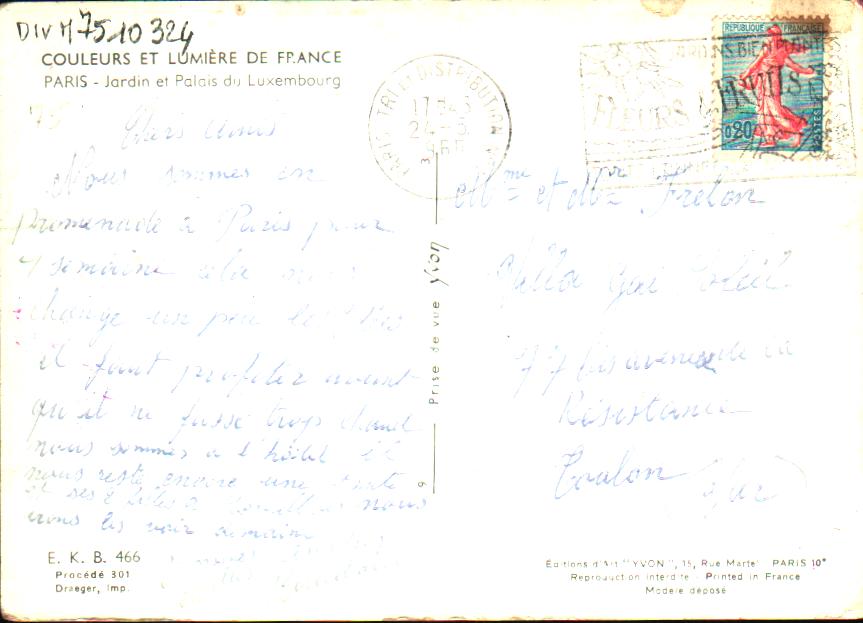 DIV M 7510324
COULEURS ET LUMIÈRE DE FRANCE
PARIS - Jardin et Palais du Luxembourg
Chers Amis
Nous sommes en
promenade à Paris pour
1 semaine cela nous
change un peu les idées
il faut profiter avant
qu'il ne fasse trop chaud
nous sommes à l'hôtel il
nous reste encore une tante
et ses 2 filles à nous
irons les voir demain
E. K. B. 466
Procédé 301
Draeger, Imp.
PARIS TRI ET DISTRIBUTION
17 H45
24 - 5
FLEURS FRUITS
REPUBLIQUE FRANÇAISE
0,20
POSTES
Prise de vue Yvon
9
Mme et Mr Frelon
Villa Gai Soleil
77 bis avenue de la
Résistance
Toulon Var
Éditions d'Art "YVON", 15, Rue Martel PARIS 10e
Reproduction interdite - Printed in France
Modèle déposé